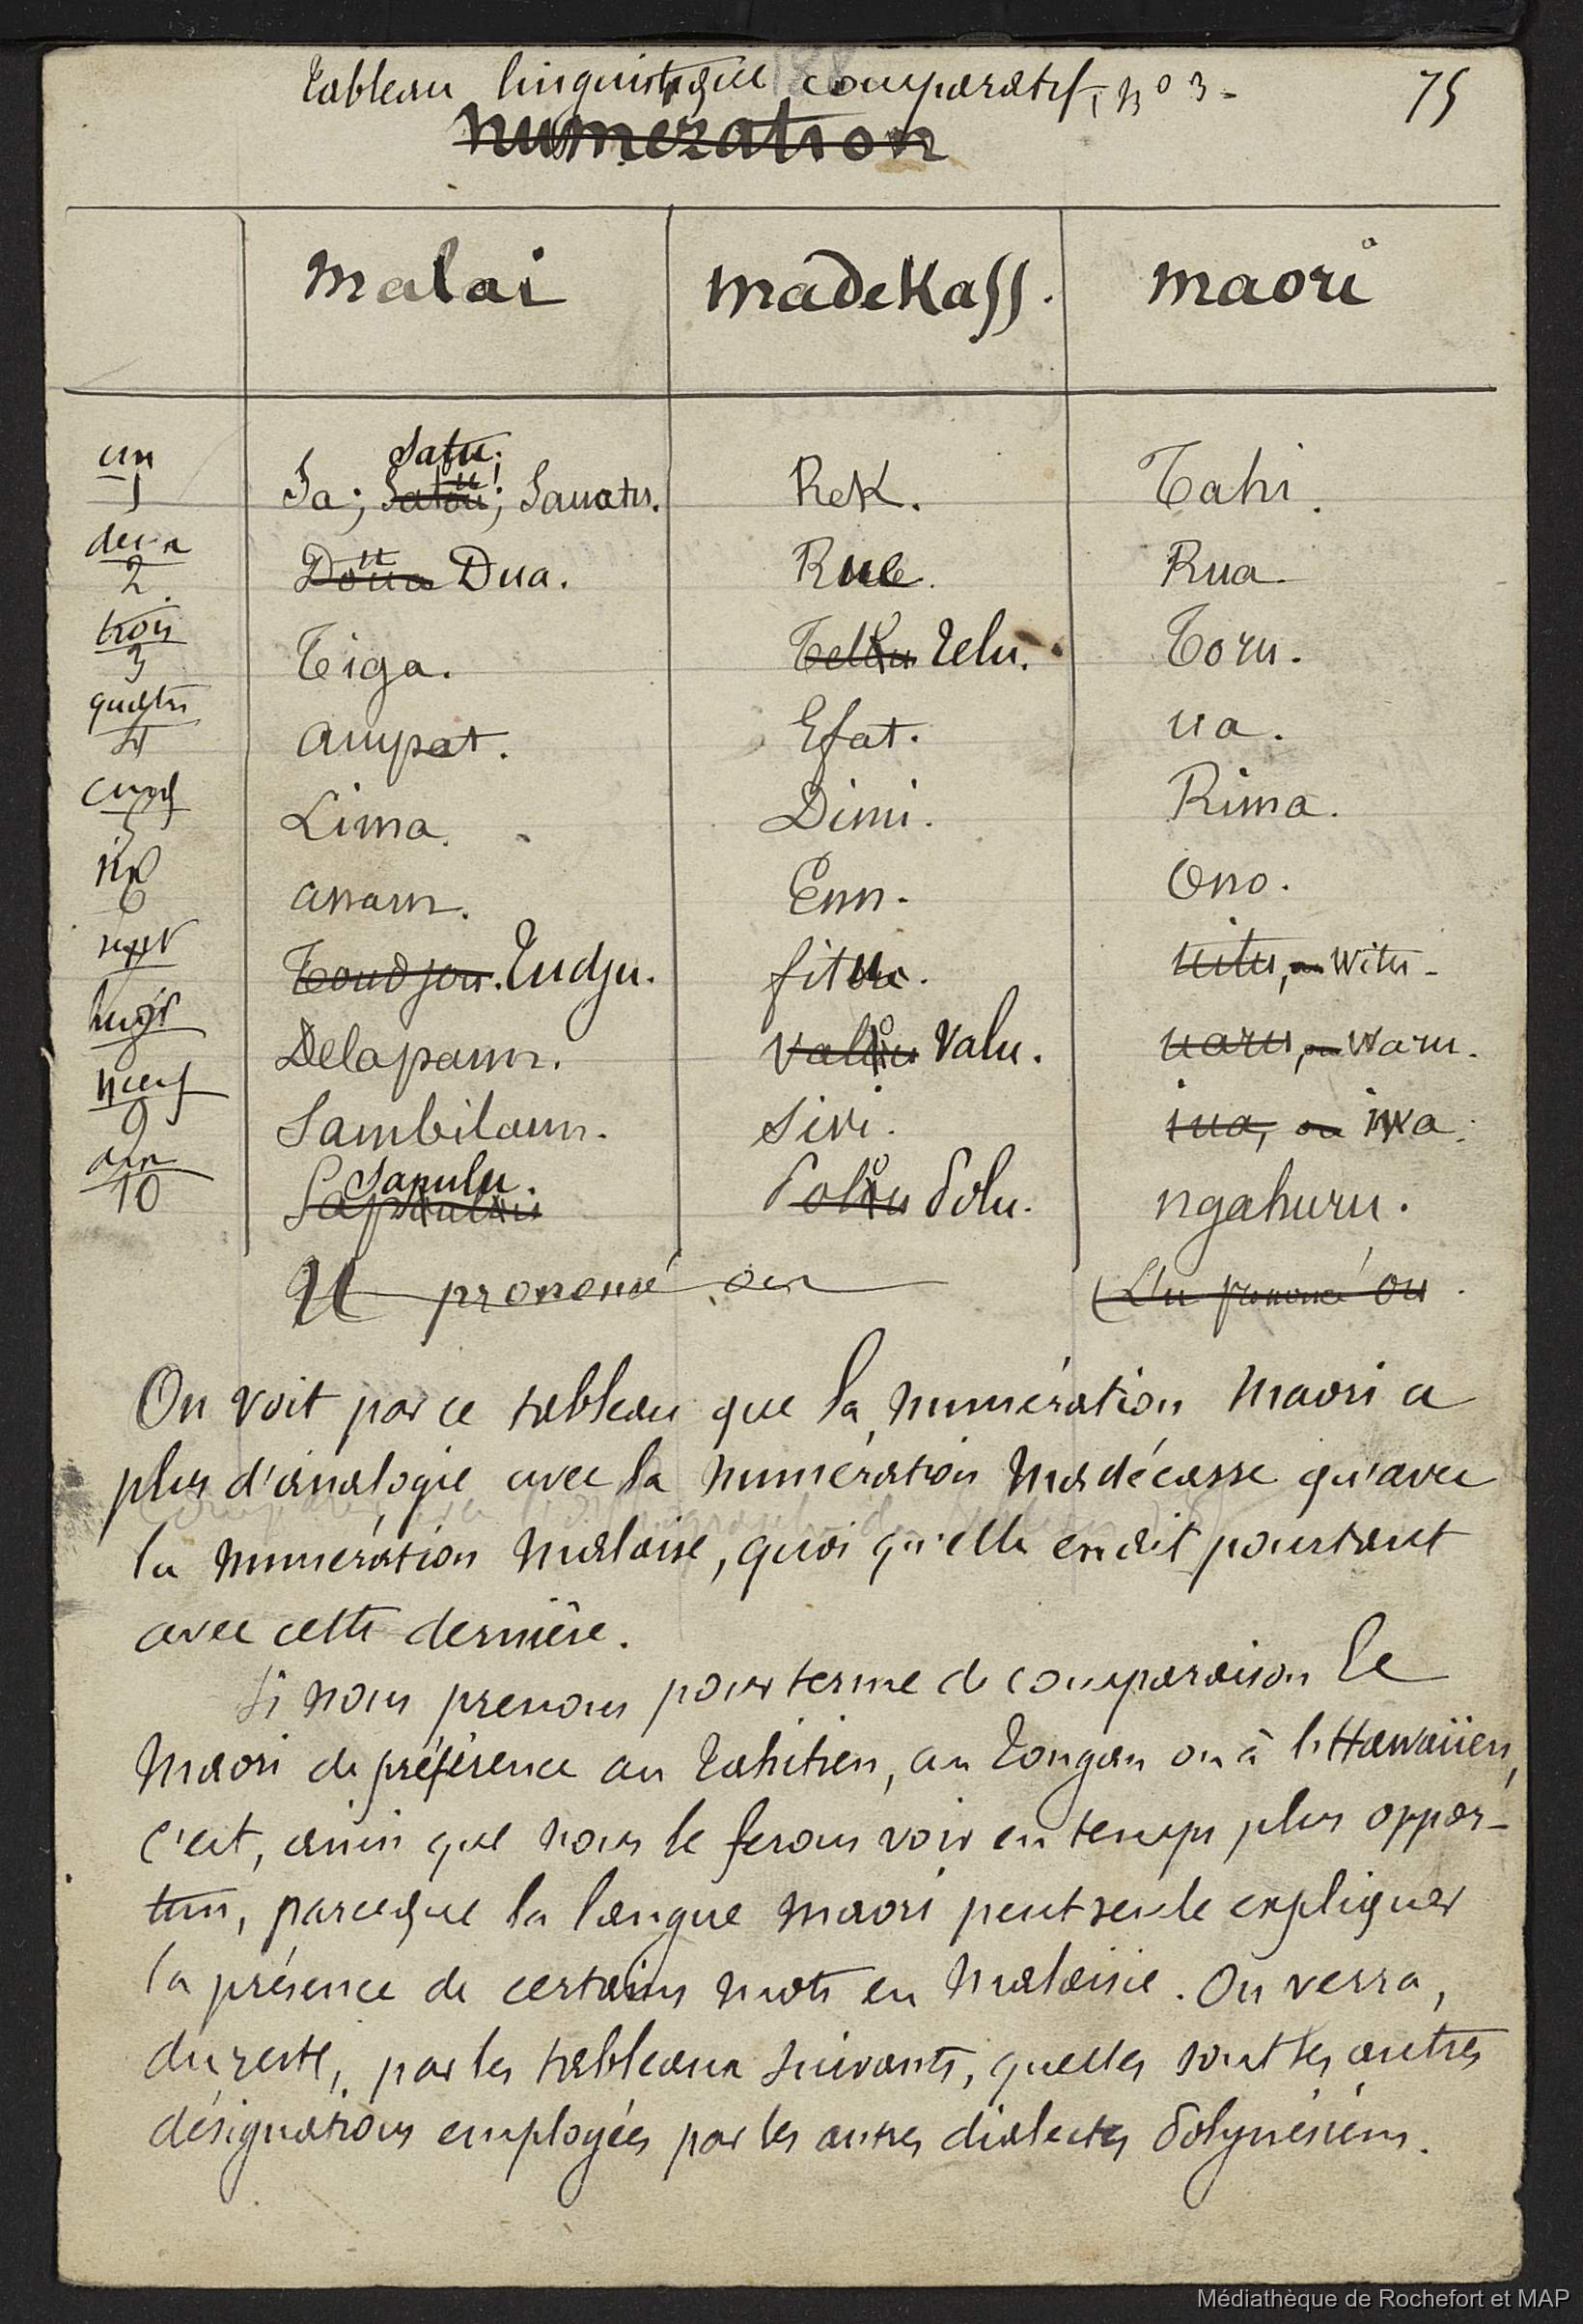 Tableau linguistique comparatif, no 3 - 75
numération
malai madekass. maori
un 1 Sa; Satou; Satu; Sauatu. Rek. Tahi.
deux 2. Doua Dua. Rue. Rua.
trois 3 Tiga. Telou Telu. Toru.
quatre 4 ampat. Efat. ua.
cinq 5 Lima. Dimi. Rima.
six 6 anam. Enn. Ono.
sept Toudjou. Tudju. fitu. uitu, ou witu -
huit 8 Delapann. valou valu. uaru, ou waru.
neuf 9 Sambilann. Sivi. iua, ou iwa.
dix 10 Sapoulou Sapulu. Polou Polu. ngahuru.
U prononcé ou (L'u prononcé ou.
On voit par ce tableau que la numération Maori a
plus d'analogie avec la numération Madécasse qu'avec
la numération Malaise, quoi qu'elle en ait pourtant
avec cette dernière.
Si nous prenons pour terme de comparaison le
Maori de préférence au Tahitien, au Tongan ou à l'Hawaiien,
c'est, ainsi que nous le ferons voir en temps plus oppor-
tun, parceque la langue Maori peut seule expliquer
la présence de certains mots en Malaisie. On verra,
du reste, par les tableaux suivants, quelles sont les autres
désignations employées par les autres dialectes Polynésiens.
Médiathèque de Rochefort et MAP